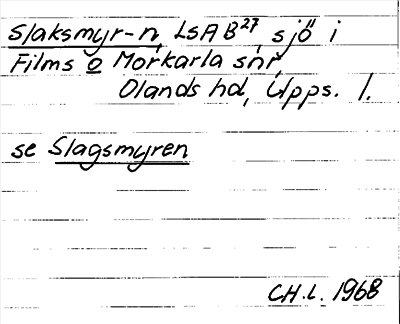 Slaksmyr-n, LsAB27, sjö i
Films o Morkarla snr,
Olands hd, Upps. l.
se Slagsmyren
CH.L. 1968